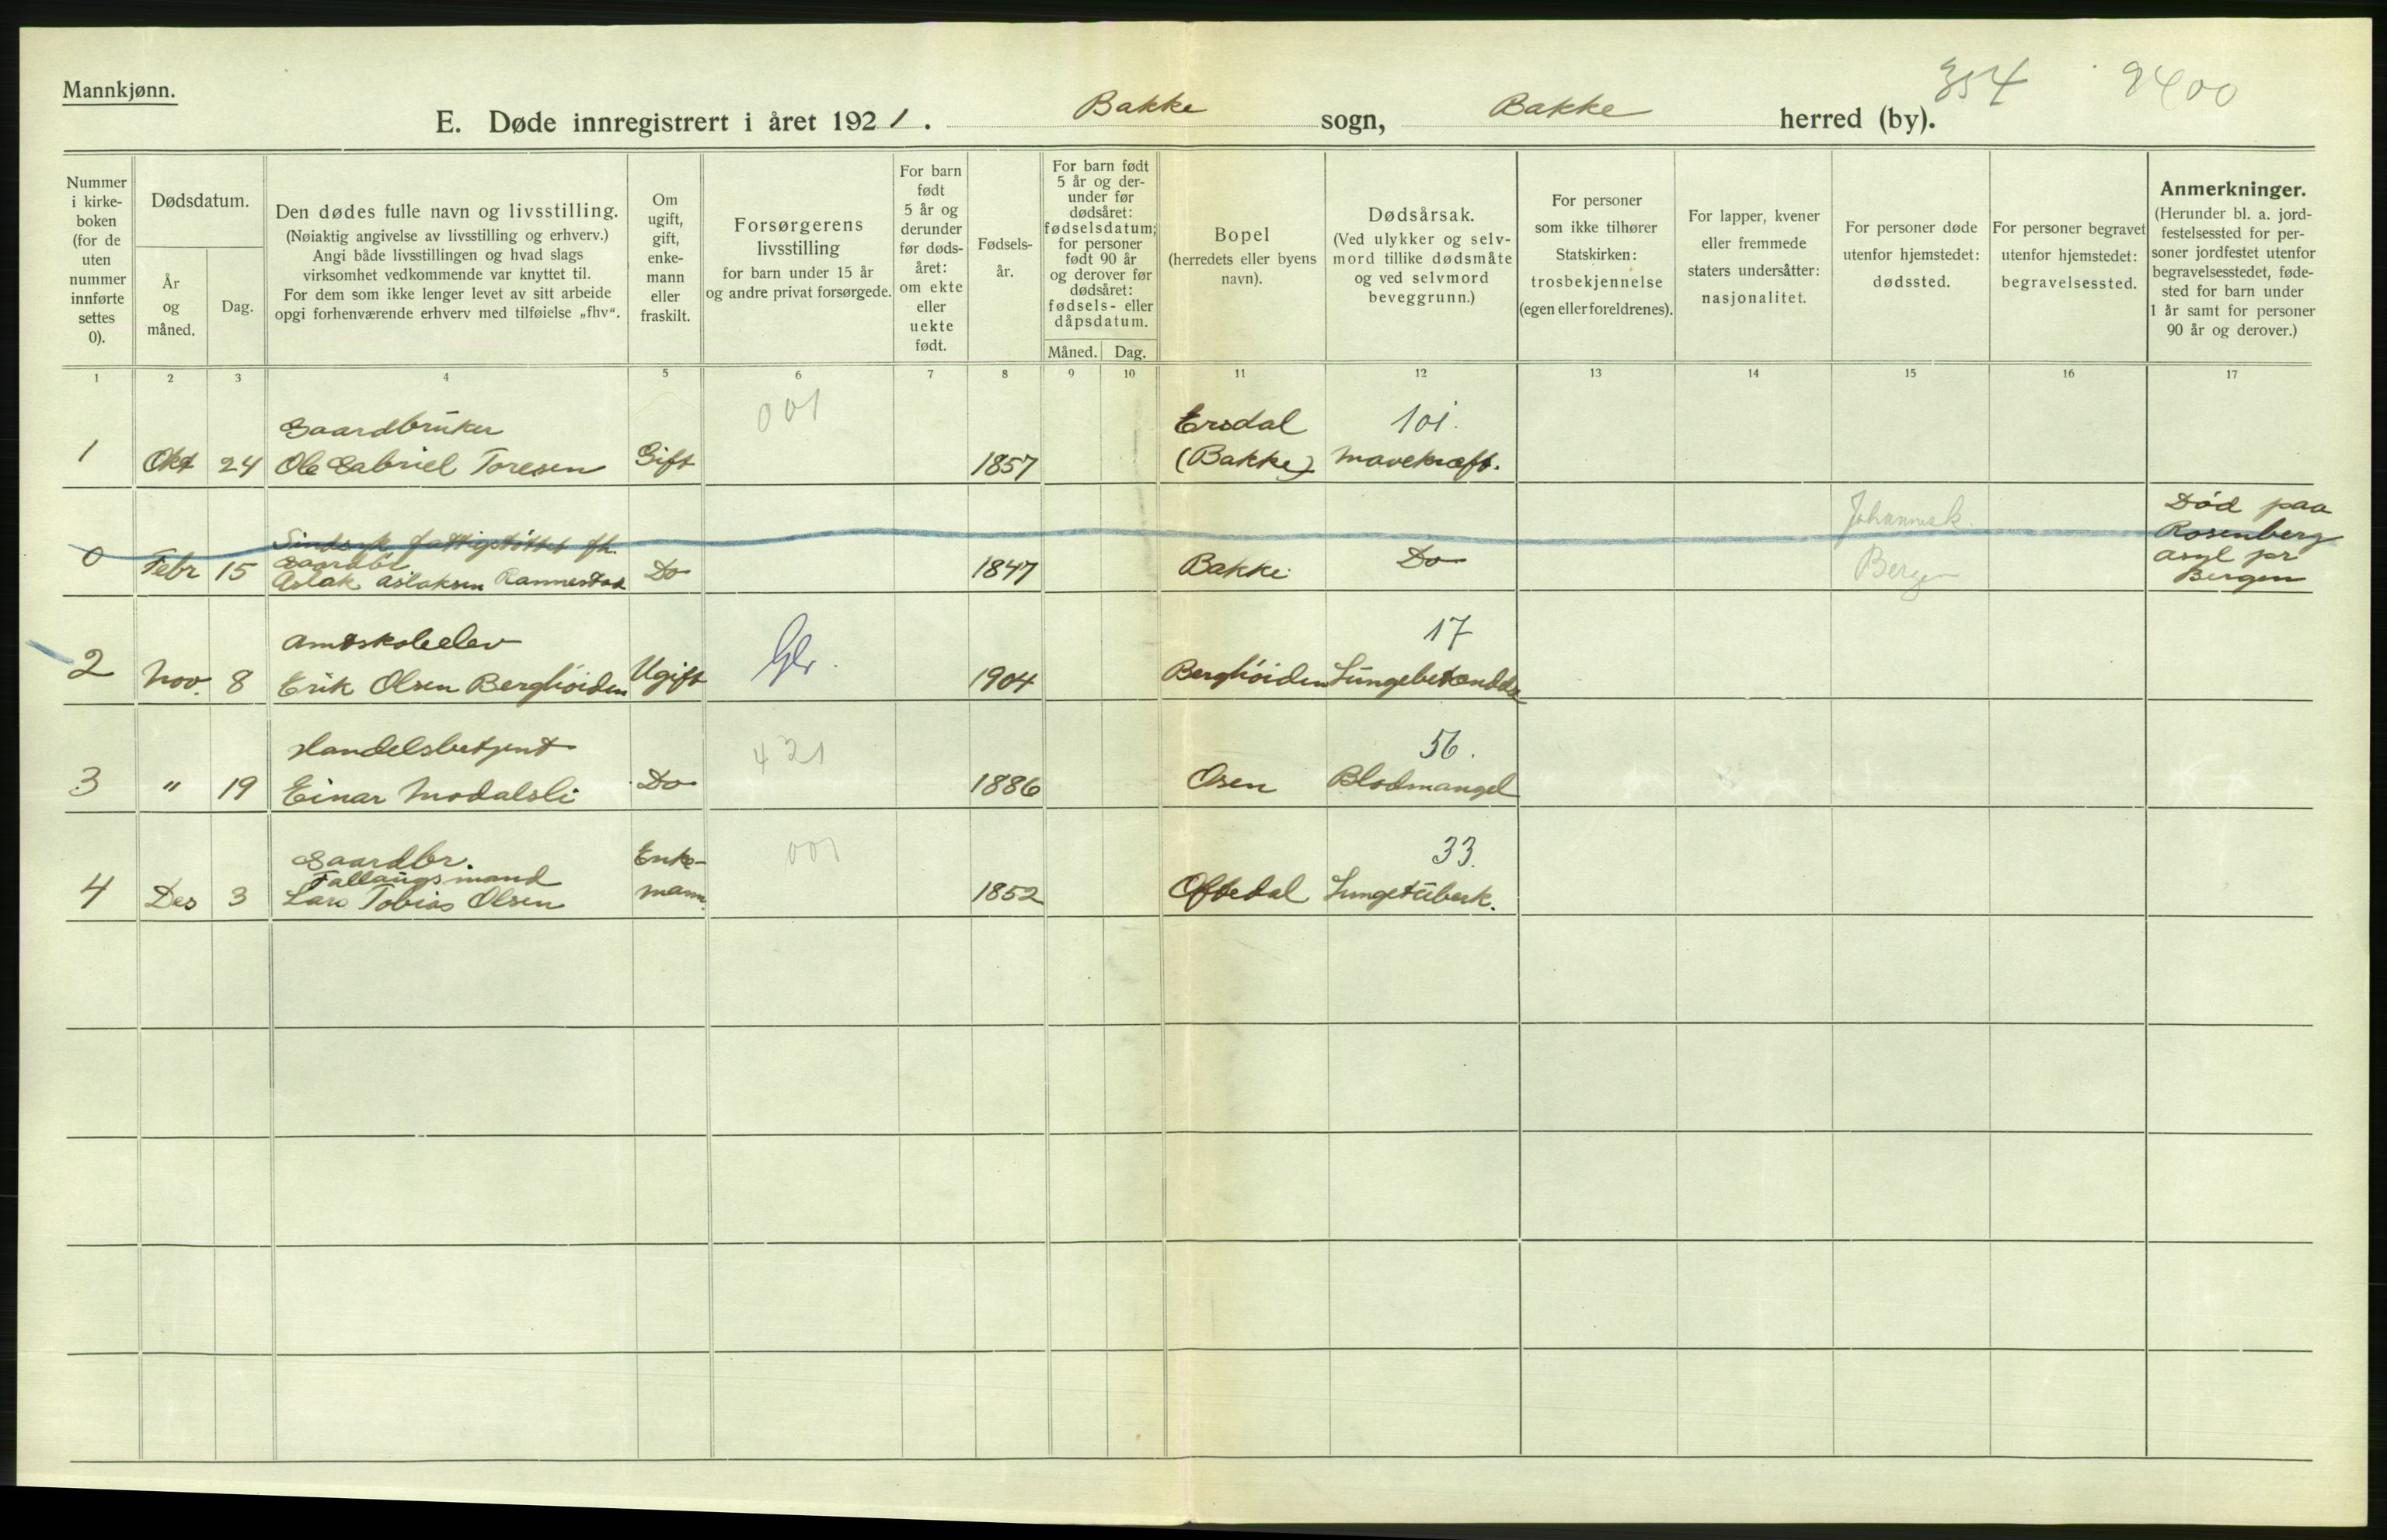 Mannkjønn.
354 9400
E. Døde innregistrert i året 1921. Bakke sogn, Bakke herred (by).
Nummer
i kirke-
boken
(for de
uten
nummer
innførte
settes
0).
Dødsdatum.
År
og
måned.
Dag.
Den dødes fulle navn og livsstilling.
(Nøiaktig angivelse av livsstilling og erhverv.)
Angi både livsstillingen og hvad slags
virksomhet vedkommende var knyttet til.
For dem som ikke lenger levet av sitt arbeide
opgi forhenværende erhverv med tilføielse „fhv“.
Om
ugift,
gift,
enke-
mann
eller
fraskilt.
Forsørgerens
livsstilling
for barn under 15 år
og andre privat forsørgede.
For barn
født
5 år og
derunder
før døds-
året:
om ekte
eller
uekte
født.
Fødsels-
år.
For barn født
5 år og der-
under før
dødsåret:
fødselsdatum;
for personer
født 90 år
og derover før
dødsåret:
fødsels- eller
dåpsdatum.
Måned. Dag.
Bopel
(herredets eller byens
navn).
Dødsårsak.
(Ved ulykker og selv-
mord tillike dødsmåte
og ved selvmord
beveggrunn.)
For personer
som ikke tilhører
Statskirken:
trosbekjennelse
(egen eller foreldrenes).
For lapper, kvener
eller fremmede
staters undersåtter:
nasjonalitet.
For personer døde
utenfor hjemstedet:
dødssted.
For personer begravet
utenfor hjemstedet:
begravelsessted.
Anmerkninger.
(Herunder bl. a. jord-
festelsessted for per-
soner jordfestet utenfor
begravelsesstedet, føde-
sted for barn under
1 år samt for personer
90 år og derover.)
1 2 3 4 5 6 7 8 9 10 11 12 13 14 15 16 17
Gaardbruker 001 Ersdal 101.
1 Okt 24 Ole Gabriel Toresen Gift 1857 (Bakke) Mavekræft.
Sindsyk fattigstøttet fh. Johannesk. Død paa
Gaardbr Rosenberg
0 Febr 15 Aslak Aslaksen Rannestad Do 1847 Bakke Do Bergen asyl pr
Bergen
Amtskoleelev 17
2 Nov. 8 Erik Olsen Berghöiden Ugift Glr. 1904 Berghöiden Lungebetændelse
Handelsbetjent 421 56.
3 " 19 Einar Modalsli Do 1886 Osen Blodmangel
Gaardbr. Enke- 001 33.
Fallaugsmand
4 Des 3 Lars Tobias Olsen mann. 1852 Oftedal Lungetuberk.